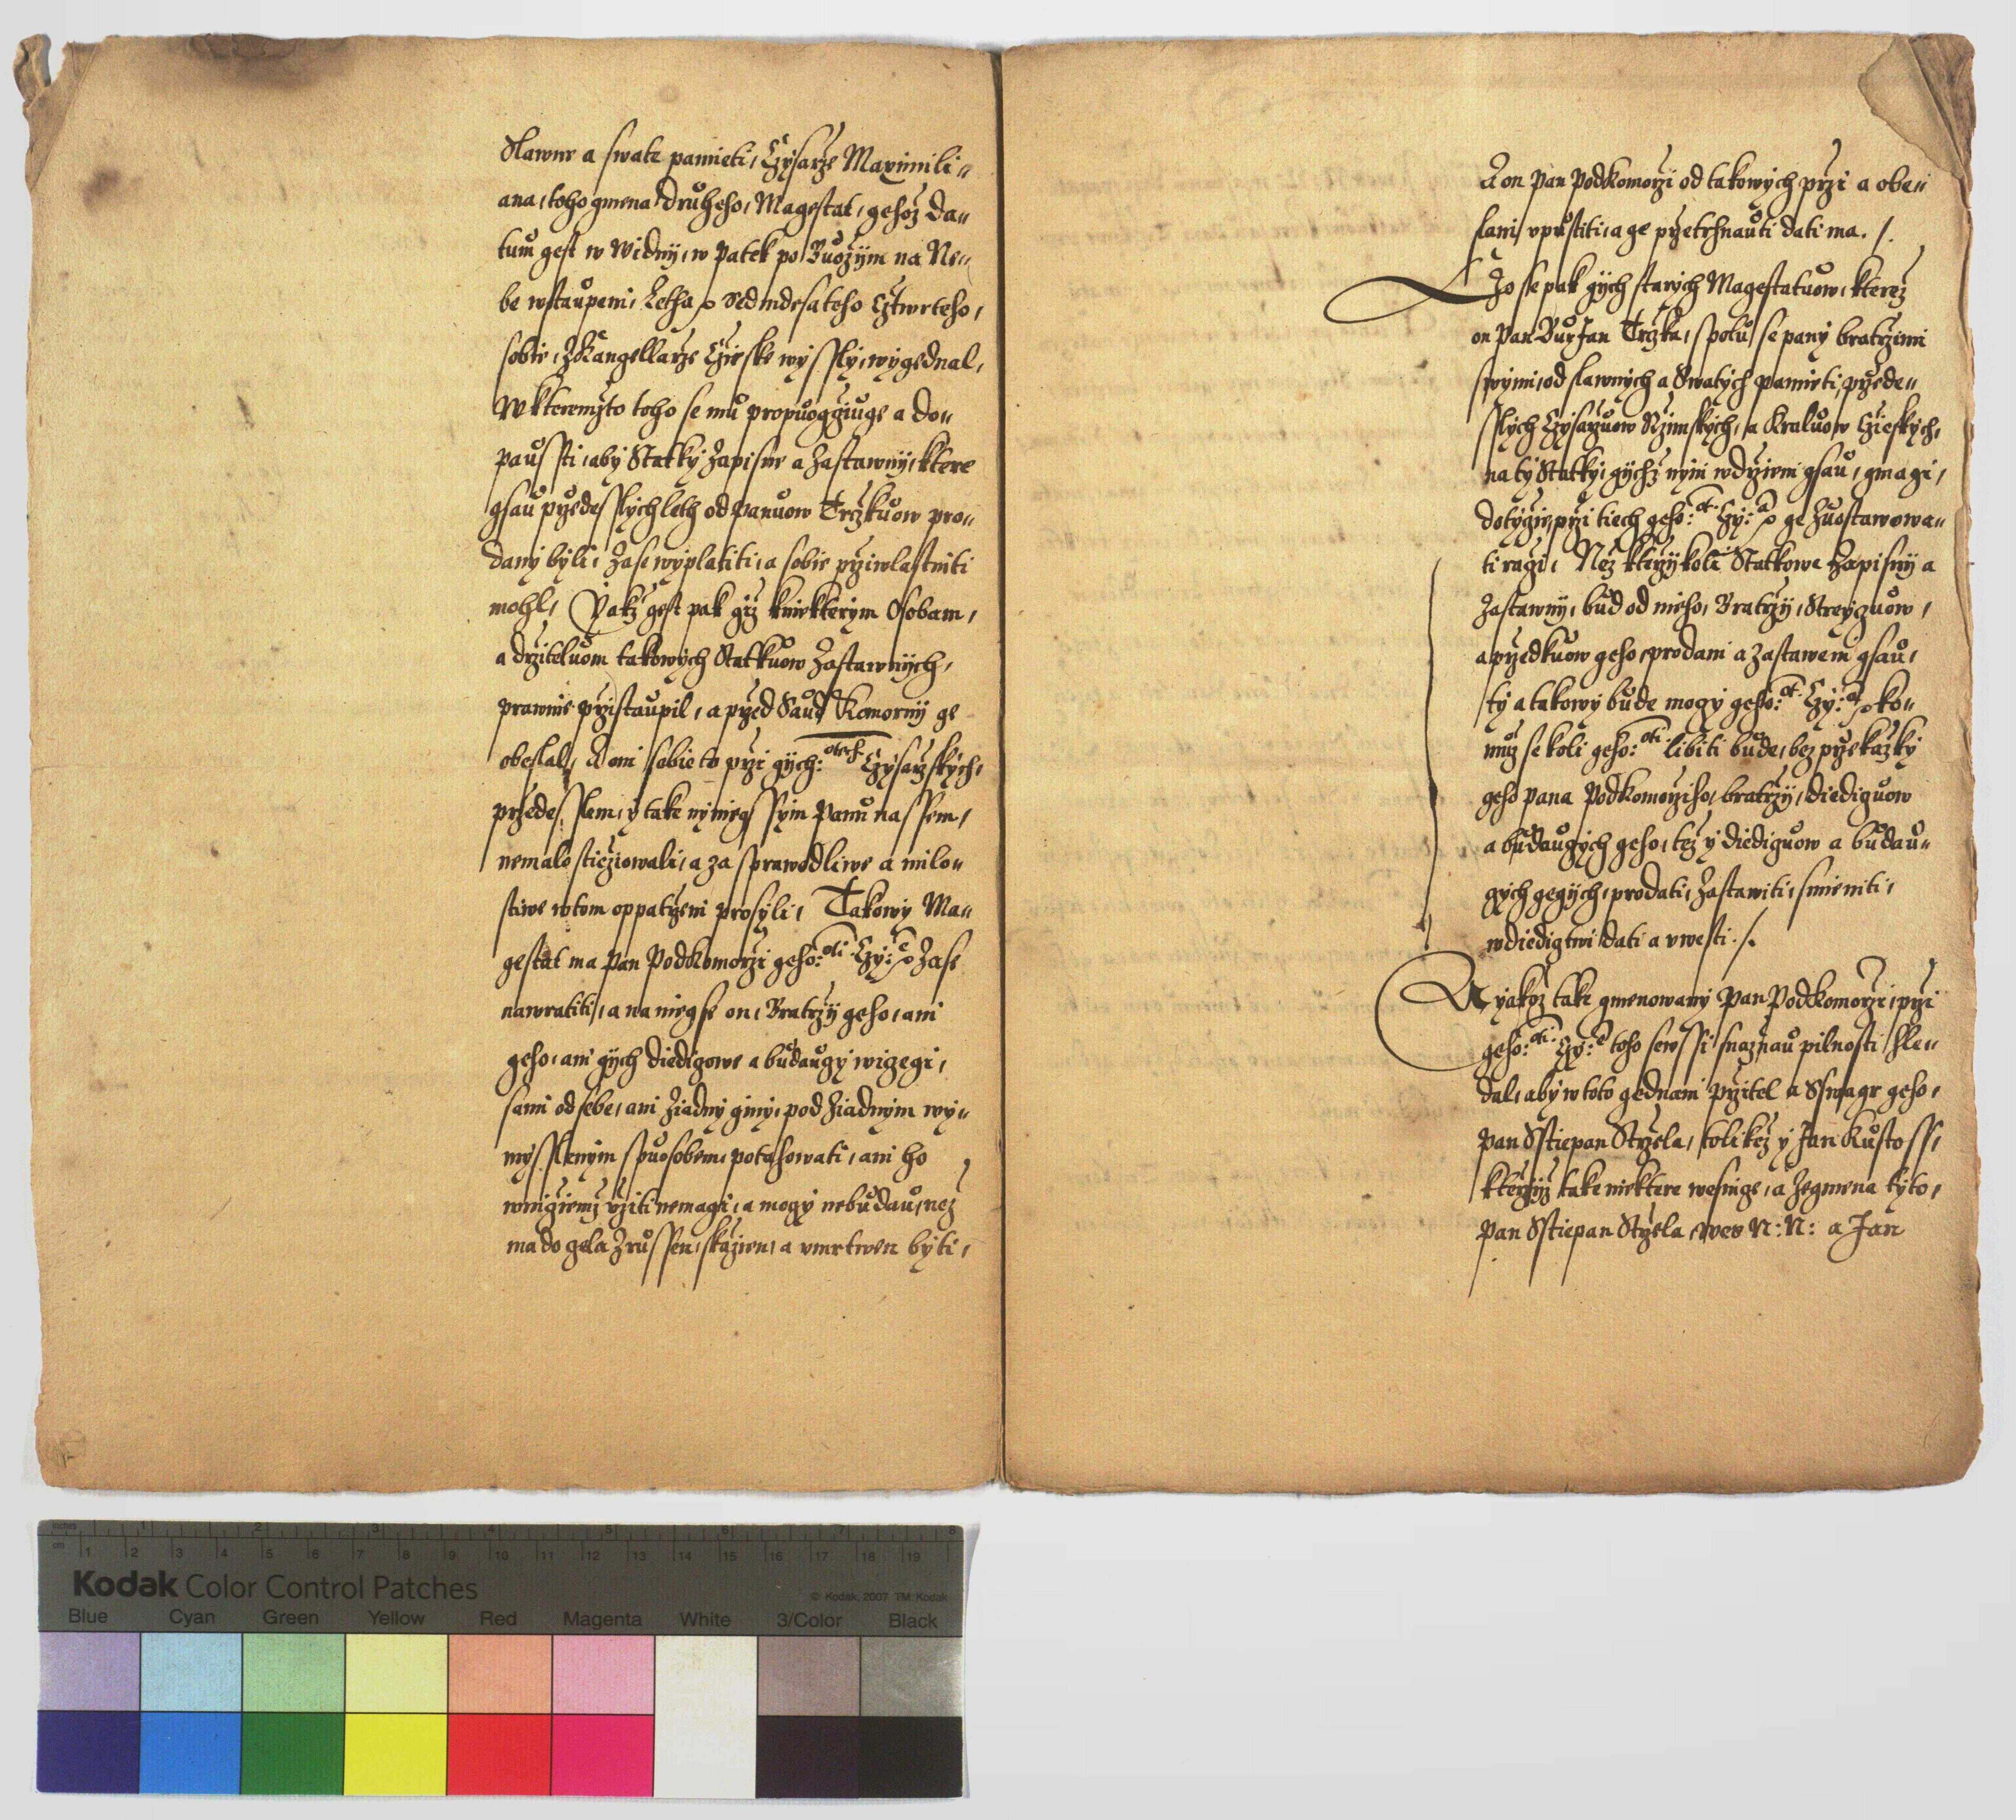 Slawne a swate pamieti, Czysarze Maximili„
ana, toho gmena Druheho, Magestat, gehoz da„
tum gest w Widny, w Patek po Buozym na Ne„
be wstaupeni, Letha etc Sedmdesateho Cztwrteho,
sobie, z Kangellarze Czieske wyssly, wygednal,
W kteremzto toho se mu propuoggiuge a do„
paussti, aby Statky Zapisne a Zastawny, ktere
gsau przedesslych leth od Panuow Trczkuow pro„
dany byli, Zase wyplatiti, a sobie prziwlastniti
mohl, Yakz gest pak giz kniekterym Osobam,
a drziteluom takowych Statkuow Zastawnych,
prawnie przistaupil, a przed Saud Komorny ge
obeslal, A oni sobie to przi gych: Mtech Czysarzskych,
przedesslem, y take nyniegssym Panu nassem,
nemalo stiezowali, a za sprawedliwe a milo„
stiwe w tom oppatrzeni prosyli, Takowy Ma„
gestat ma Pan Podkomorzi geho: Mti Czy: e etc Zase
nawratiti, a na nieg se on, Bratrzy geho, ani
geho, ani gych Diedigowe a budaugy wicegi,
sami od sebe, ani Ziadny giny, pod Ziadnym wy„
mysslenym spuosobem, potahowati, ani ho
w niczemz vziti nemagi, a mogy nebudau, nez
ma do gela Zrussen, skazen, a vmrtwen byti,
A on Pan Podkomorzi od takowych przi a obe„
slani vpustiti, a ge przetrhnauti dati ma. /.
Czo se pak gych starych Magestatuow, kterez
on Pan Buryan Trczka, spolu se pany bratrzimi
swymi, od slawnych a Swatych pamieti, przede„
sslych Czysarzuow Rzimskych, a Kraluow Czieskych,
na ty Statky, gychz nyni w drzeni gsau, gmagi,
dotyge, przi tiech geho: Mt Czy: a etc ge Zuostawowa„
ti ragi, Nez kterzykoli Statkowe Zapisny a
Zastawny, bud od nieho, Bratrzy, Streyzuow,
a przedkuow geho, prodani a Zastaweni gsau,
ty a takowy bude mogy geho: Mt Czy: a etc ko„
muz se koli geho: Mti libiti bude, bez przekazky
geho pana Podkomorziho, bratrzy, diediguow
a budaugych geho, tez y diediguow a budau„
gych gegych, prodati, Zastawiti, smieniti,
w diedigtwi dati a vwesti. /.
A yakoz take gmenowany Pan Podkomorzi, przi
geho: Mti Czy: e toho se wssi snaznau pilnosti hle„
dal, aby w toto gednani przitel a Sswagr geho,
Pan Sstiepan Strzela, tolikez y Jan Kustoss,
kteryz take niektere wesnige, a Zegmena tyto,
Pan Sstiepan Strzela, Wes N: N: a Jan